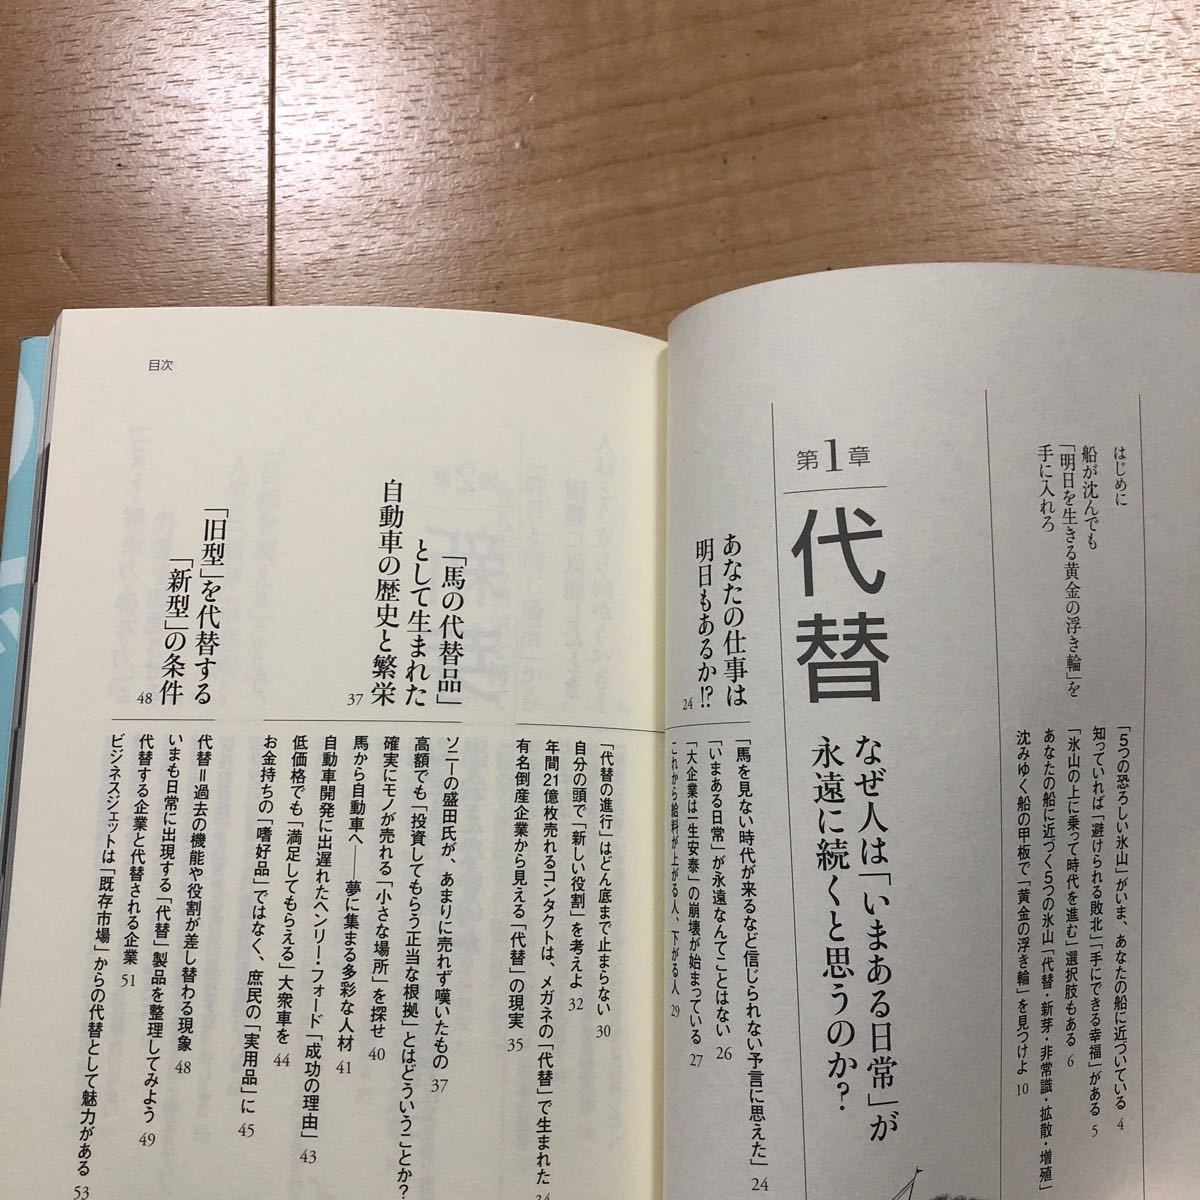 はじめに
船が沈んでも
「明日を生きる黄金の浮き輪」を
手に入れろ
「5つの恐ろしい氷山」がいま、あなたの船に近づいている 4
知っていれば「避けられる敗北」「手にできる幸福」がある 5
「氷山の上に乗って時代を進む」選択肢もある 6
あなたの船に近づく5つの氷山「代替・新芽・非常識・拡散・増殖」
沈みゆく船の甲板で「黄金の浮き輪」を見つけよ 10
第1章
代替
なぜ人は「いまある日常」が
永遠に続くと思うのか?
あなたの仕事は
明日もあるか!? 24
「馬を見ない時代が来るなど信じられない予言に思えた」 24
「いまある日常」が永遠なんてことはない 26
「大企業は一生安泰」の崩壊が始まっている 27
これから給料が上がる人、下がる人 29
「代替の進行」はどん底まで止まらない 30
自分の頭で「新しい役割」を考えよ 32
年間21億枚売れるコンタクトは、メガネの「代替」で生まれた 34
有名倒産企業から見える「代替」の現実 35
「馬の代替品」
として生まれた
自動車の歴史と繁栄 37
ソニーの盛田氏が、あまりに売れず嘆いたもの 37
高額でも「投資してもらう正当な根拠」とはどういうことか?
確実にモノが売れる「小さな場所」を探せ 40
馬から自動車へ――夢に集まる多彩な人材 41
自動車開発に出遅れたヘンリー・フォード「成功の理由」 43
低価格でも「満足してもらえる」大衆車を 44
お金持ちの「嗜好品」ではなく、庶民の「実用品」に 45
「旧型」を代替する
「新型」の条件 48
代替=過去の機能や役割が差し替わる現象 48
いまも日常に出現する「代替」製品を整理してみよう 49
代替する企業と代替される企業 51
ビジネスジェットは「既存市場」からの代替として魅力がある 53
目次